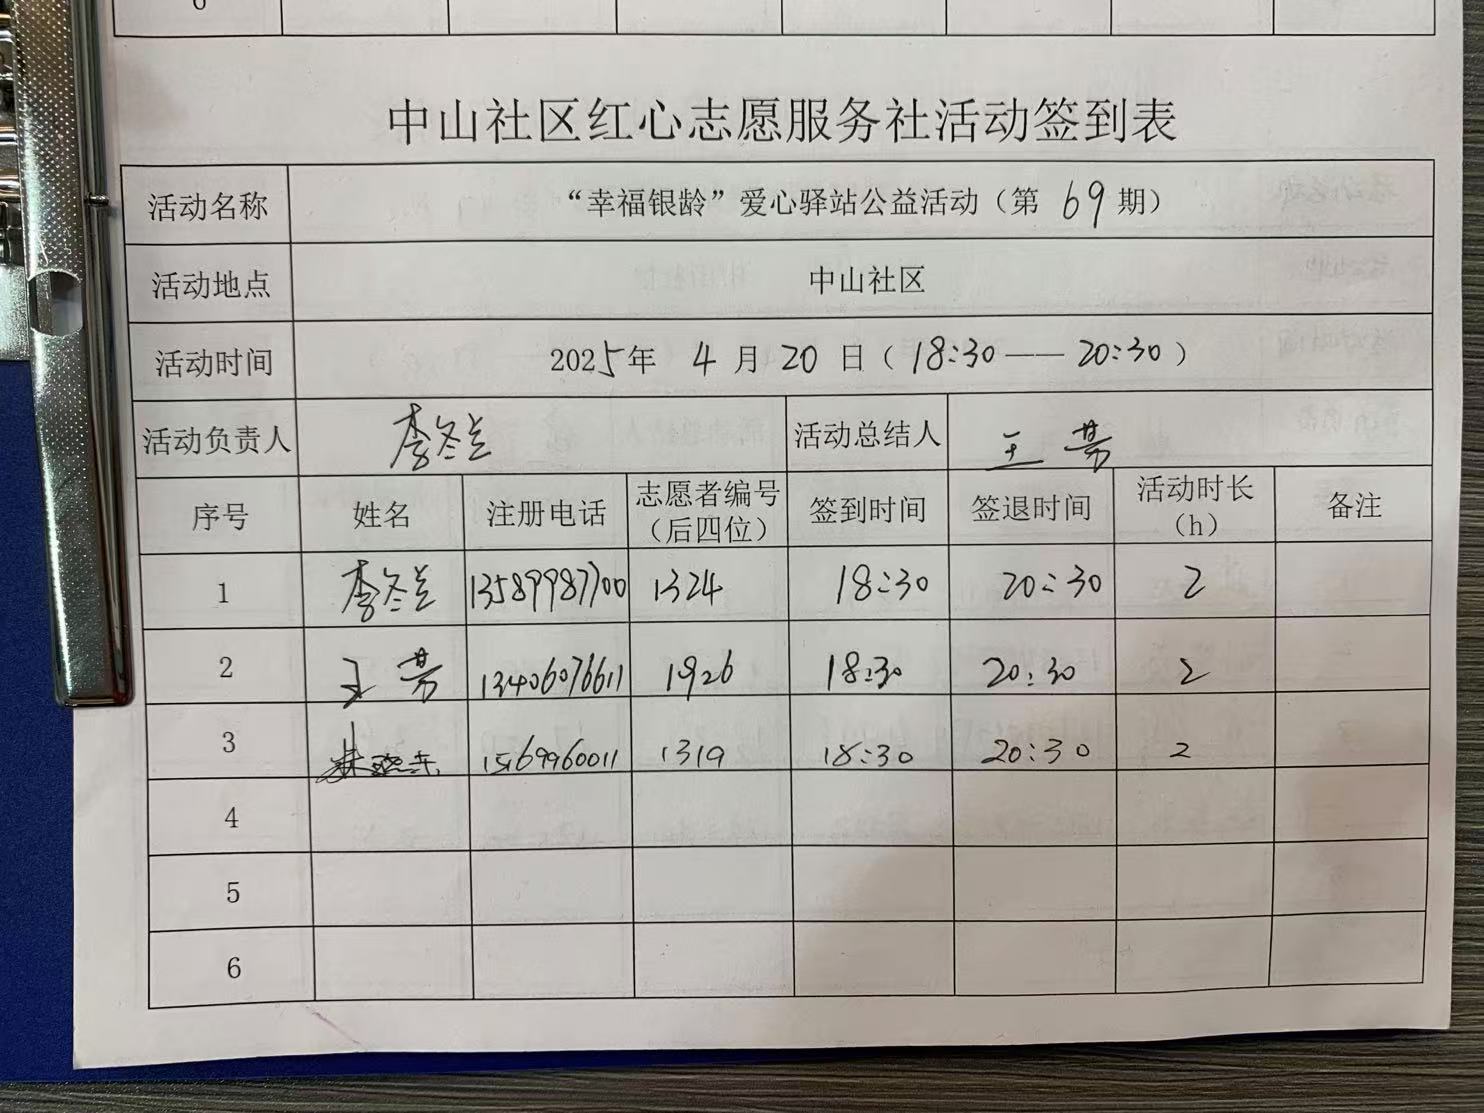 6
中山社区红心志愿服务社活动签到表
活动名称 “幸福银龄”爱心驿站公益活动（第 69 期）
活动地点 中山社区
活动时间 2025年 4 月 20 日（18:30 —— 20:30）
活动负责人 李冬兰 活动总结人 王芳
序号 姓名 注册电话 志愿者编号（后四位） 签到时间 签退时间 活动时长（h） 备注
1 李冬兰 13589987700 1324 18:30 20:30 2
2 王芳 13406076611 1926 18:30 20:30 2
3 15169960011 1319 18:30 20:30 2
4
5
6